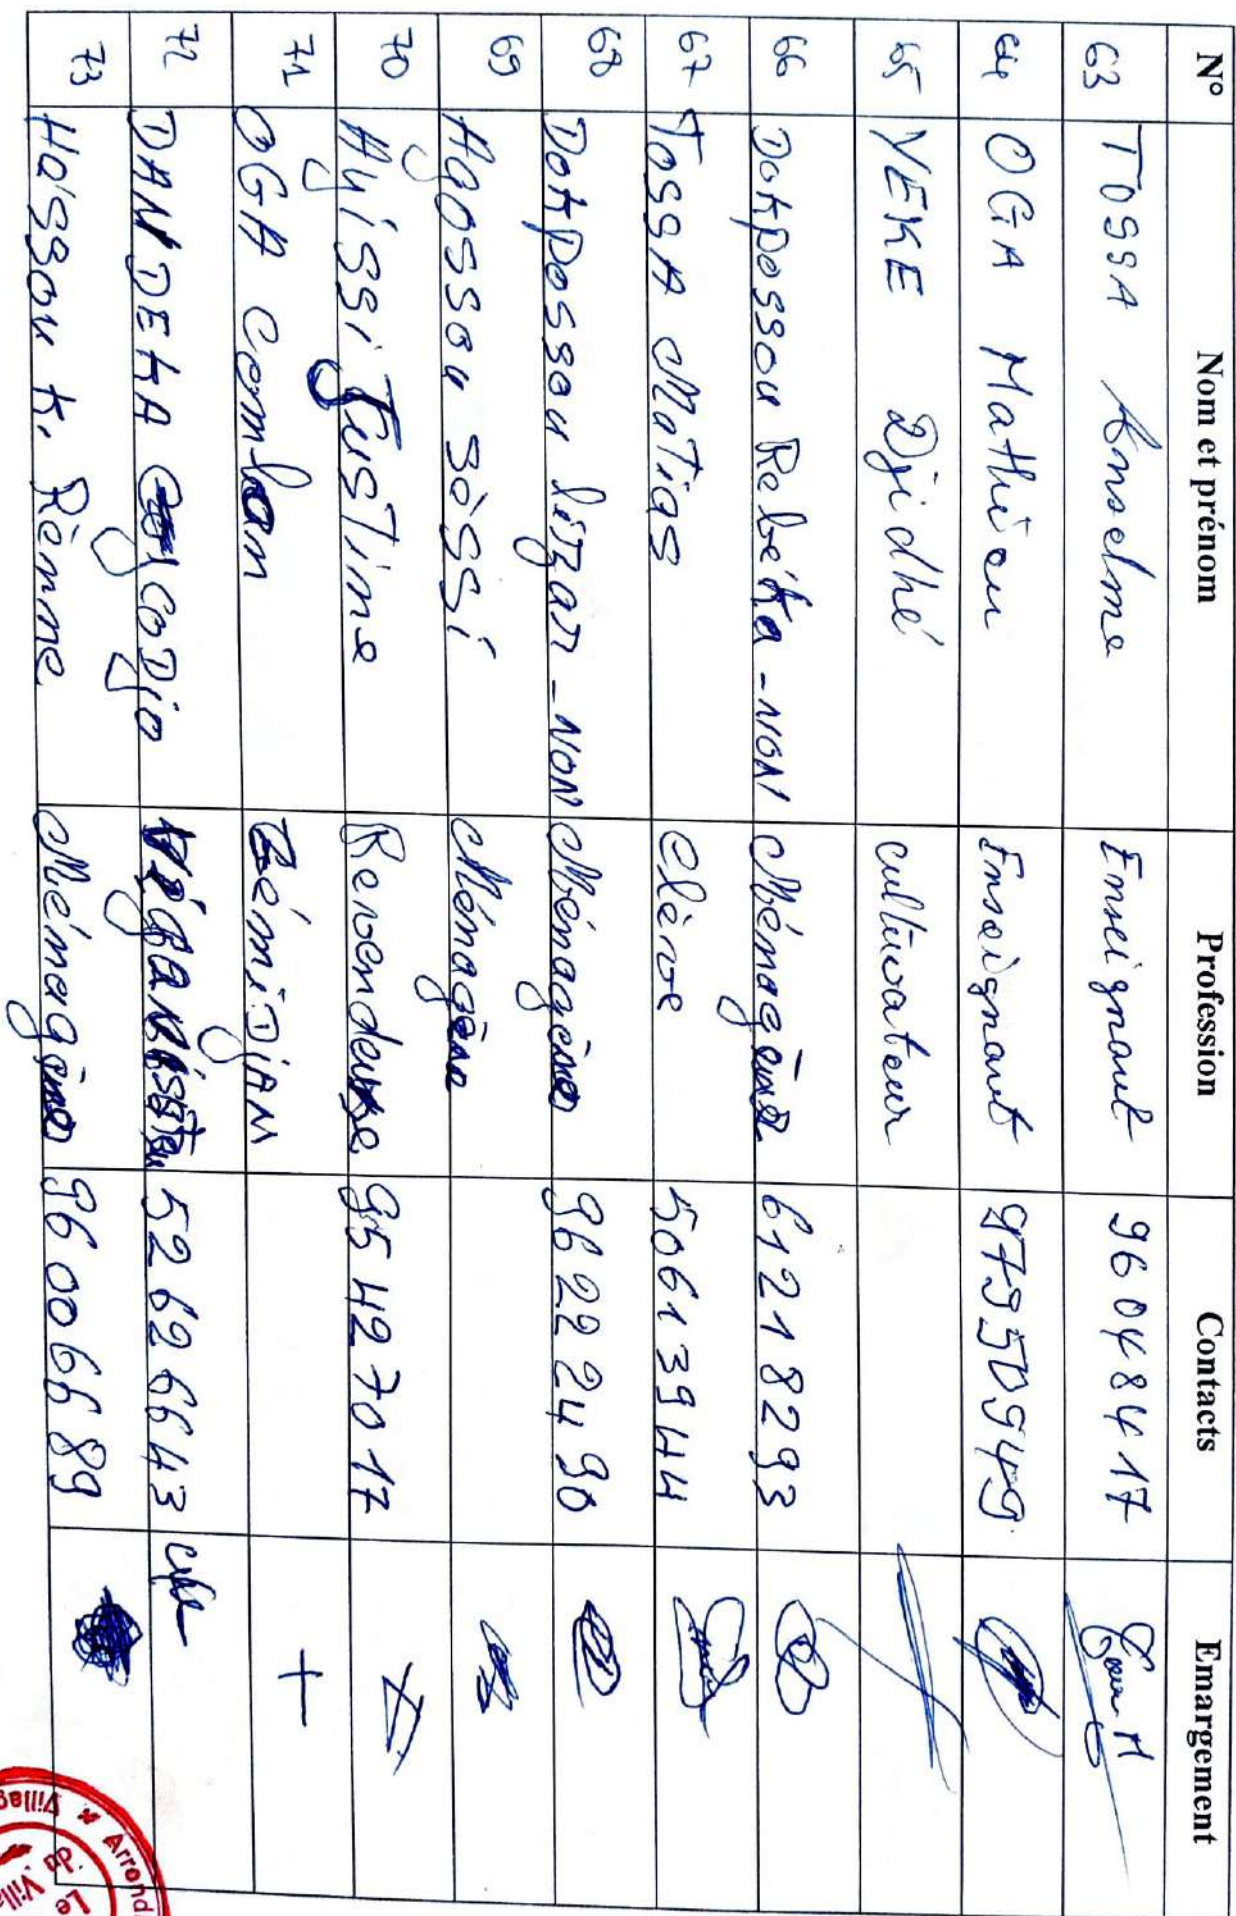 N° Nom et prénom Profession Contacts Emargement
63 TOSSA Anselme Enseignant 96048417
64 OGA Mathieu Enseignant 97950949
65 VEKE Djidhé cultivateur
66 Dokpossou Rebéka-NON Ménagère 61218293
67 TossA MaTias elève 50613944
68 Dokpossou -NON Ménagère 96222490
69 Agossou Sossi Ménagère
70 Ayissi JusTine Revendeuse 95427017
71 OGA Comlan ZémiDJAN
72 DANDEKA CoDjo 52626643
73 Hossou K. Ménagère 96006689
Arrond
Village
Le